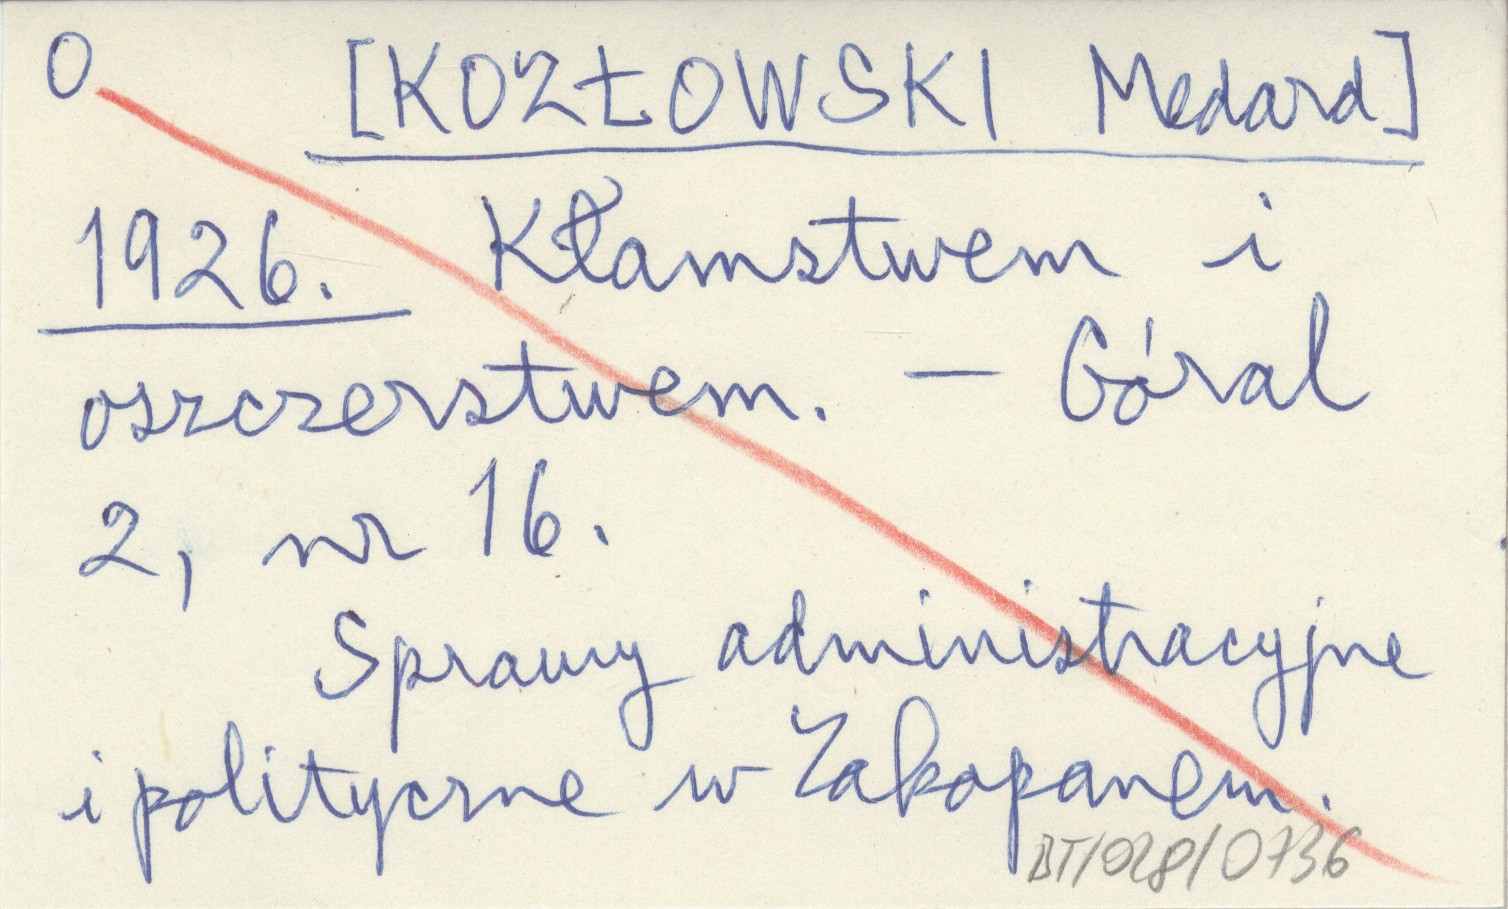 O [KOZŁOWSKI Medard]
1926. Kłamstwem i
oszczerstwem. — Góral
2, nr 16.
Sprawy administracyjne
i polityczne w Zakopanem.
BT/028/0736